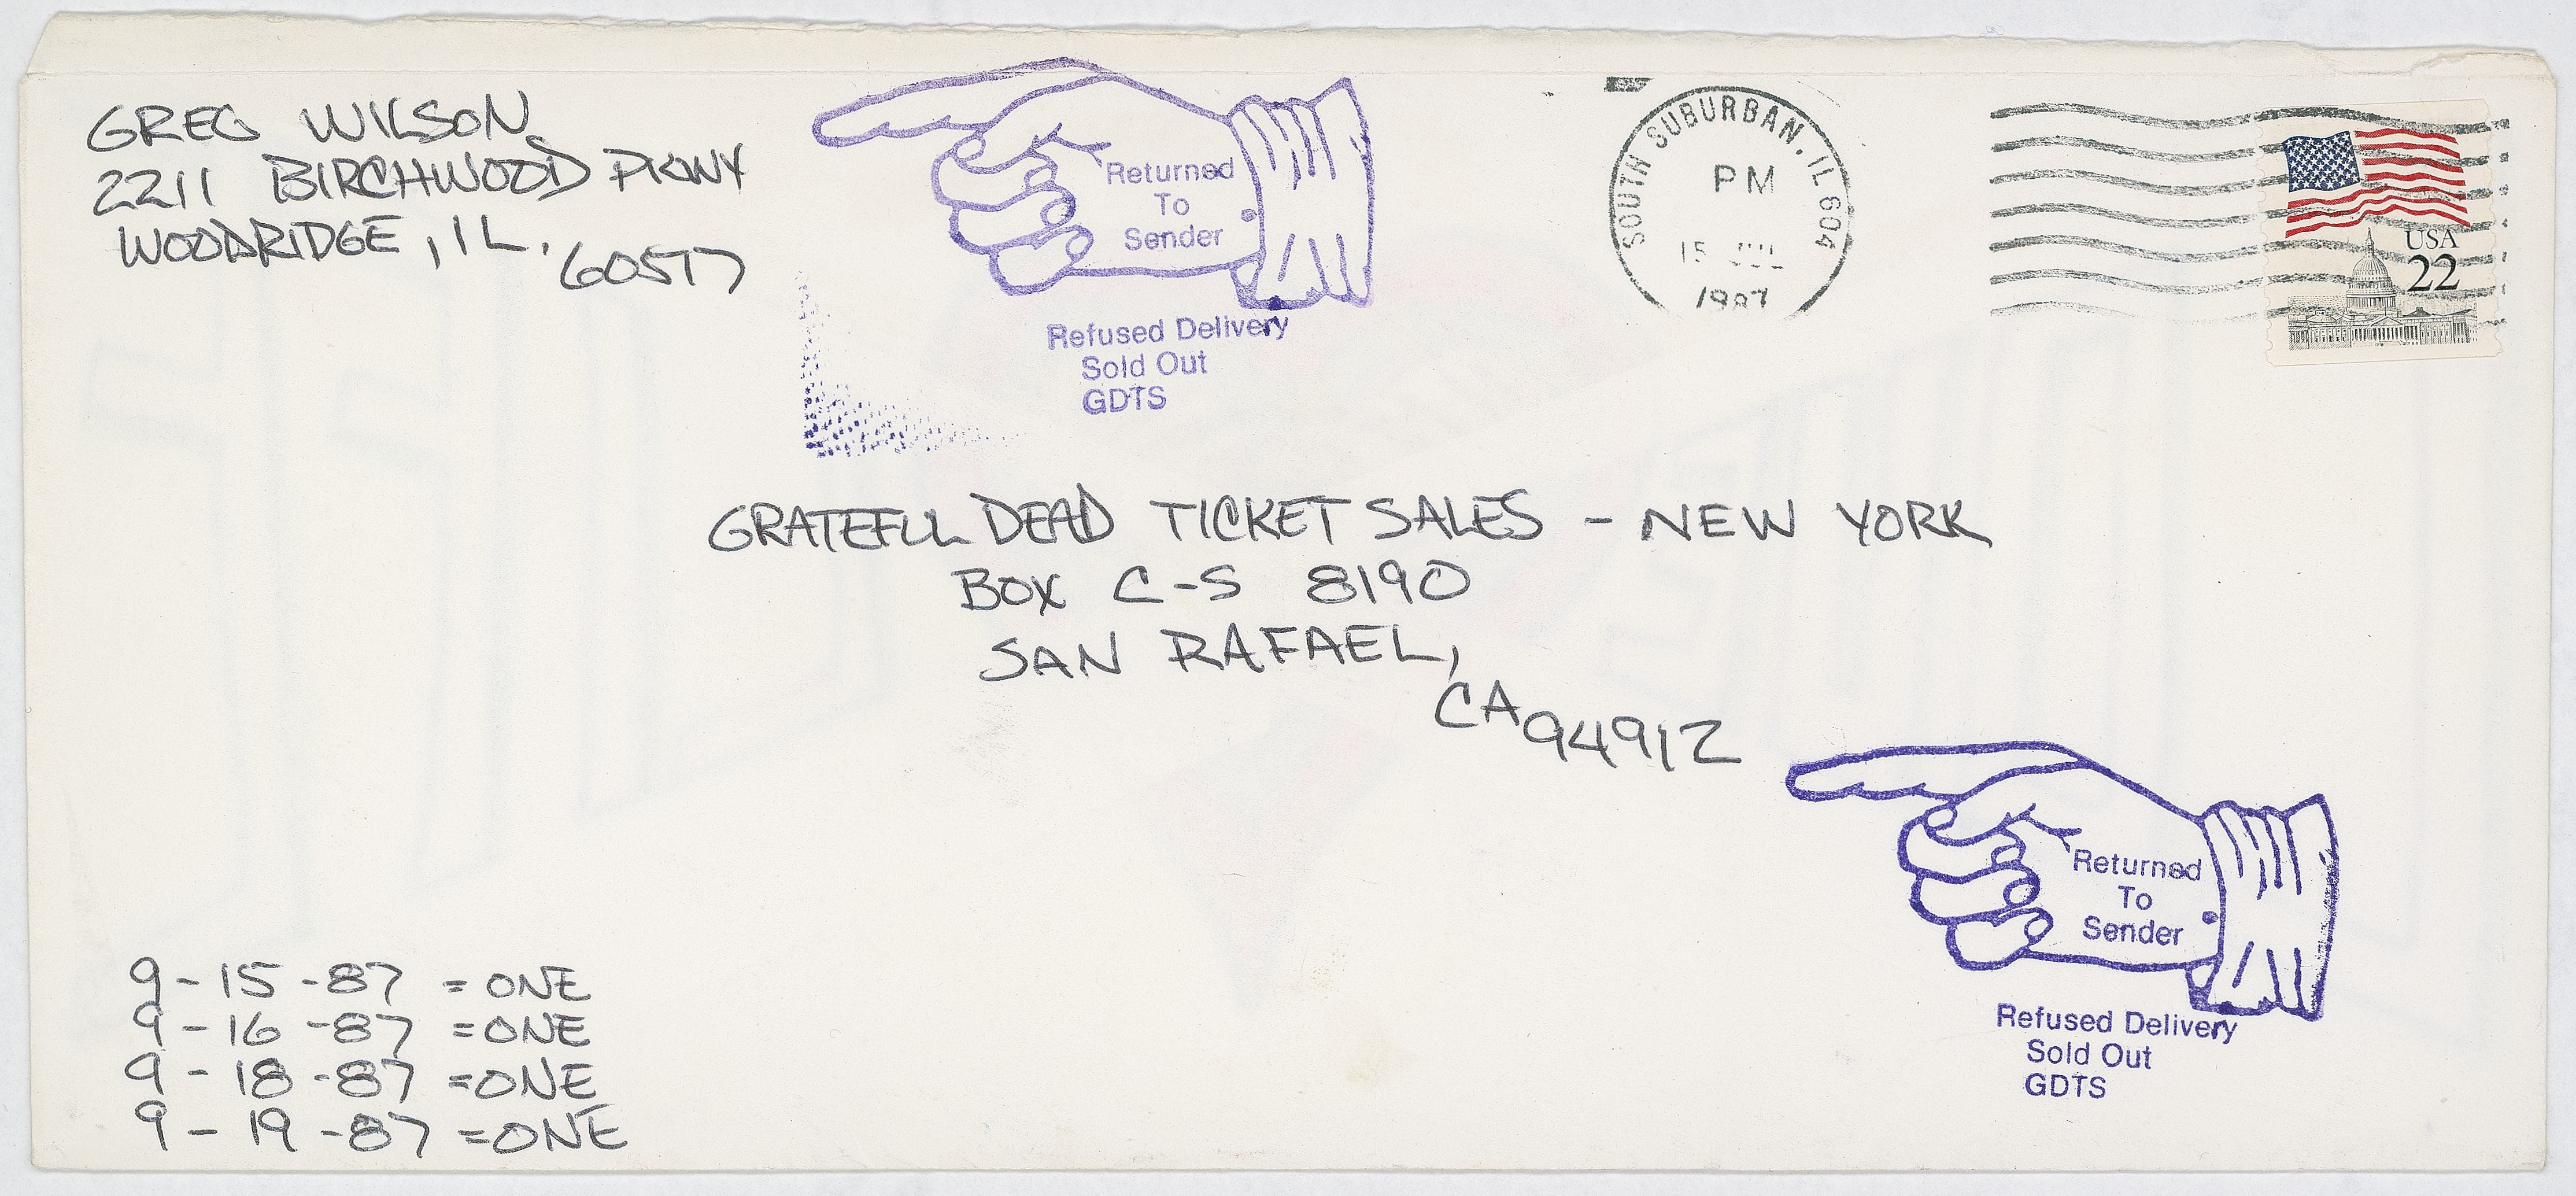 GREG WILSON
2211 BIRCHWOOD PKWY
WOODRIDGE, IL. 60517
Returned
To
Sender
Refused Delivery
Sold Out
GDTS
SOUTH SUBURBAN, IL 604
PM
15 JUL
1987
USA
22
GRATEFUL DEAD TICKET SALES - NEW YORK
BOX C-S 8190
SAN RAFAEL,
CA 94912
Returned
To
Sender
Refused Delivery
Sold Out
GDTS
9-15-87 = ONE
9-16-87 = ONE
9-18-87 = ONE
9-19-87 = ONE